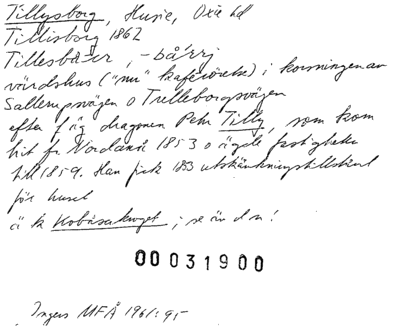 Tillysborg, Husie, Oxie hd
Tillisborg 1862
Tillesbåsr, -bå'rj
värdshus ("nu" kaférörelse) i korsningen av
Sallerupsvägen o Trelleborgsvägen
efter f äg dragonen Petr Tilly, som kom
hit fr Nordanå 1853 o ägde fastigheten
till 1859. Han fick 1853 utskänkningstillstånd
för huset
ä k Kobåsakroget; se än d n!
00031900
Ingers MFÅ 1961:95